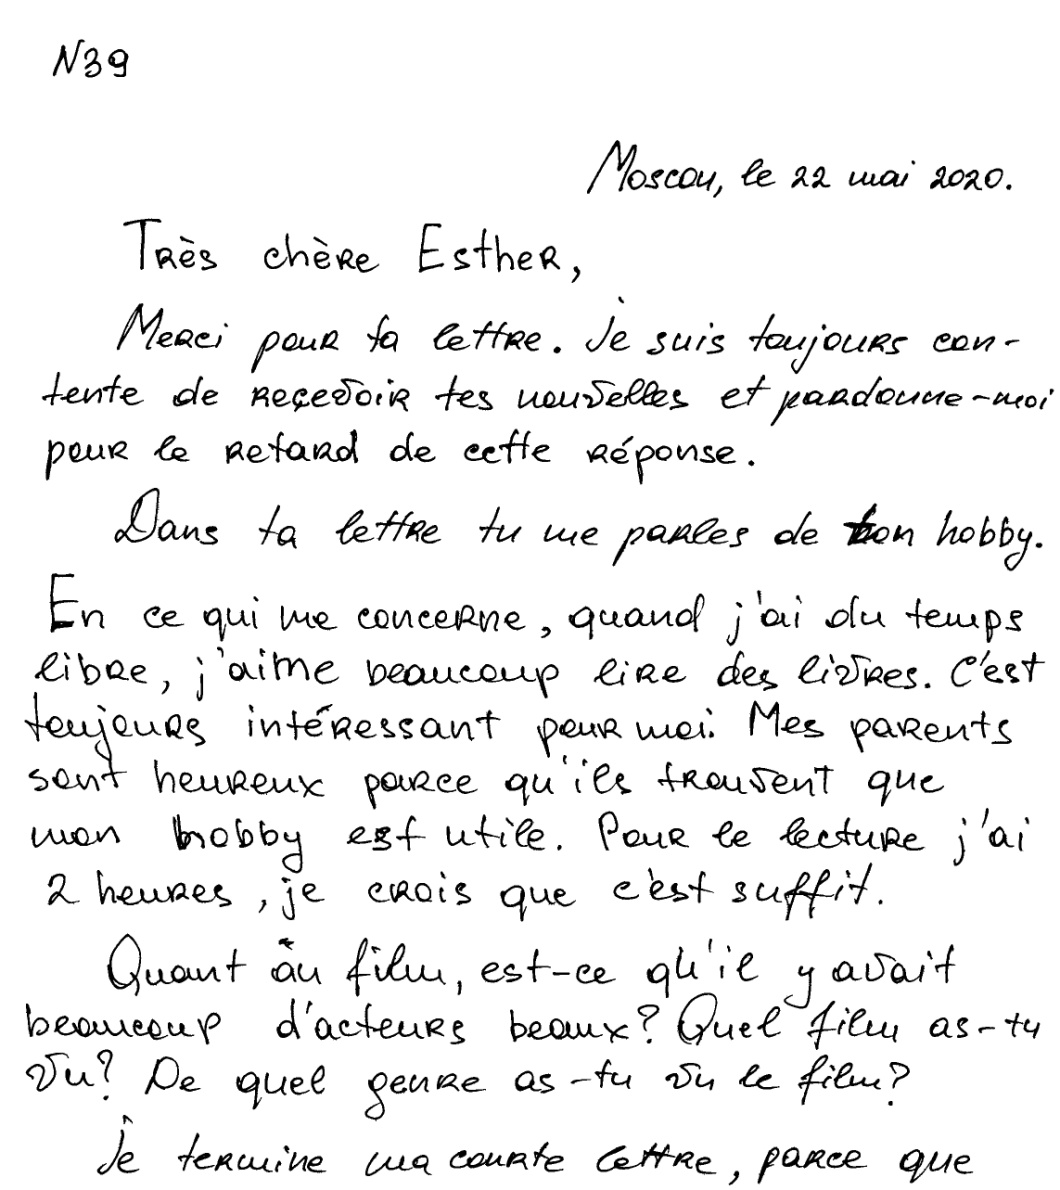 N39
Moscou, le 22 mai 2020.
Très chère Esther,
Merci pour ta lettre. Je suis toujours con-
tente de reçevoir tes nouvelles et pardonne-moi
pour le retard de cette réponse.
Dans ta lettre tu me parles de ton hobby.
En ce qui me concerne, quand j'ai du temps
libre, j'aime beaucoup lire des livres. C'est
toujours intéressant pour moi. Mes parents
sont heureux parce qu'ils trouvent que
mon hobby est utile. Pour le lecture j'ai
2 heures, je crois que c'est suffit.
Quant au film, est-ce qu'il y avait
beaucoup d'acteurs beaux? Quel film as-tu
vu? De quel genre as-tu vu le film?
Je termine ma courte lettre, parce que